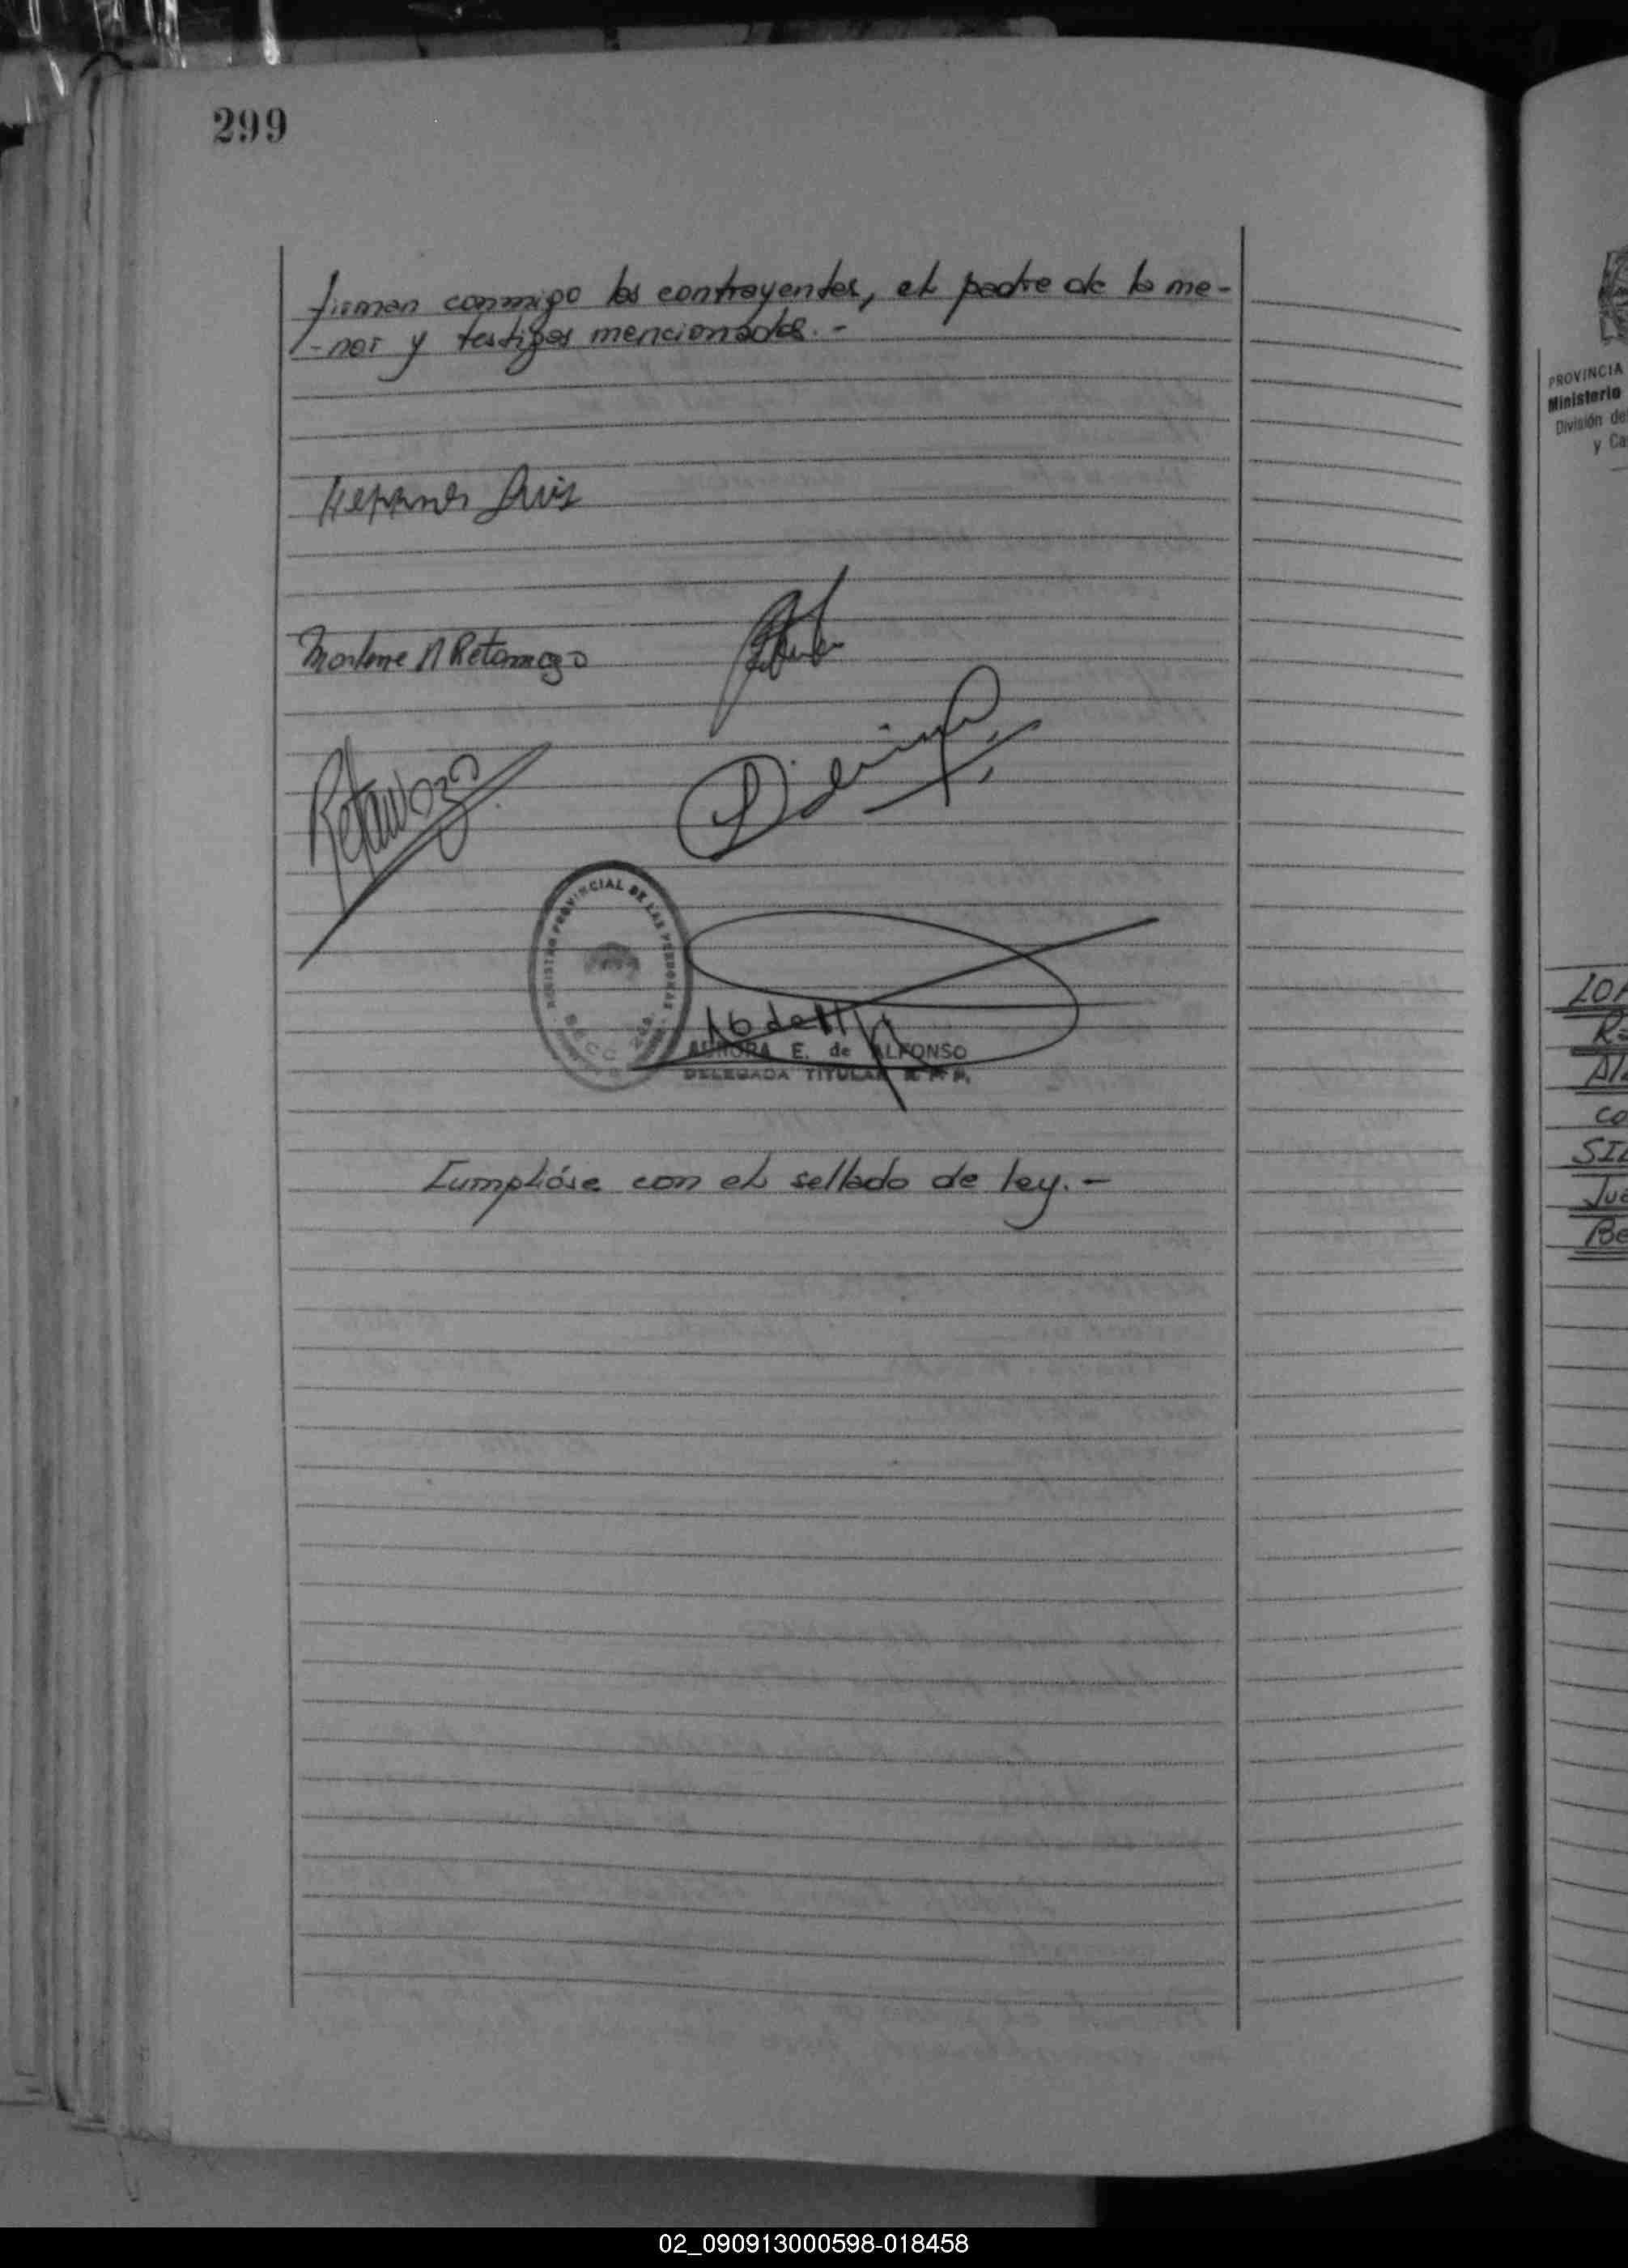 299
firman conmigo los contrayentes, el padre de la me-
-nor y testigos mencionados.-
Luis
Marlene A Retamozo
Retamozo
REGISTRO PROVINCIAL DE LAS PERSONAS
SECC.
AURORA E. de ALFONSO
DELEGADA TITULAR R. P. P.
Cumplióse con el sellado de ley.-
PROVINCIA
Ministerio
División de
y Ca
LOP
Ra
Al
co
SIL
Jua
Be
02_090913000598-018458